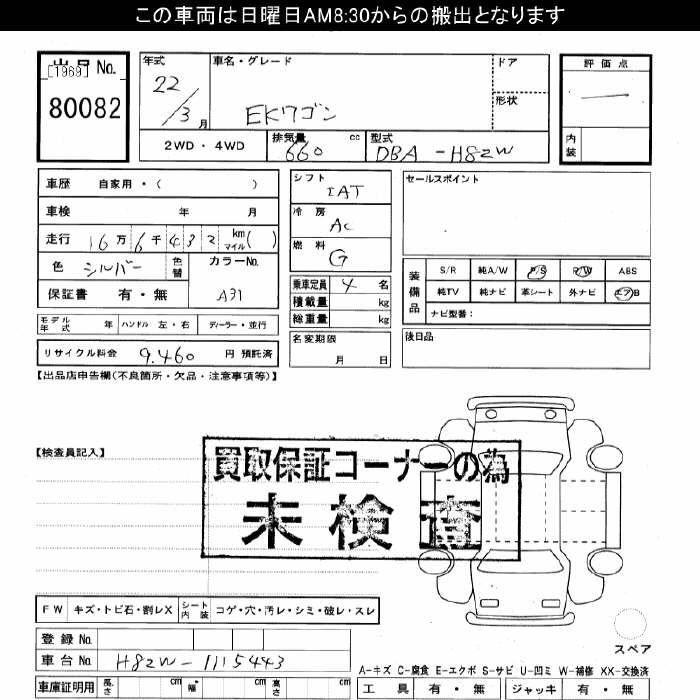 この車両は日曜日AM8:30からの搬出となります
出品 No.
[1969]
80082
年式
22/3月
車名・グレード
EKワゴン
ドア
形状
評価点
—
内装
2WD・4WD
排気量 660 cc
型式 DBA-H82W
車歴 自家用・( )
車検 年 月
走行 16万6千432 km マイル( )
色 シルバー 色替
カラーNo. A31
保証書 有・無
シフト IAT
冷房 AC
燃料 G
乗車定員 4 名
積載量 kg
総重量 kg
名変期限 月 日
セールスポイント
装備品
S/R 純A/W P/S P/W ABS
純TV 純ナビ 革シート 外ナビ エアB
ナビ型番:
後日品
モデル年式 年 ハンドル 左・右 ディーラー・並行
リサイクル料金 9,460 円 預託済
【出品店申告欄(不良箇所・欠品・注意事項等)】
【検査員記入】
買取保証コーナーの為
未検査
FW キズ・トビ石・割レX シート内装 コゲ・穴・汚レ・シミ・破レ・スレ
登録No.
車台No. H82W-1115443
スペア
A-キズ C-腐食 E-エクボ S-サビ U-凹ミ W-補修 XX-交換済
車庫証明用 長さ cm 幅 cm 高さ cm
工具 有・無 ジャッキ 有・無